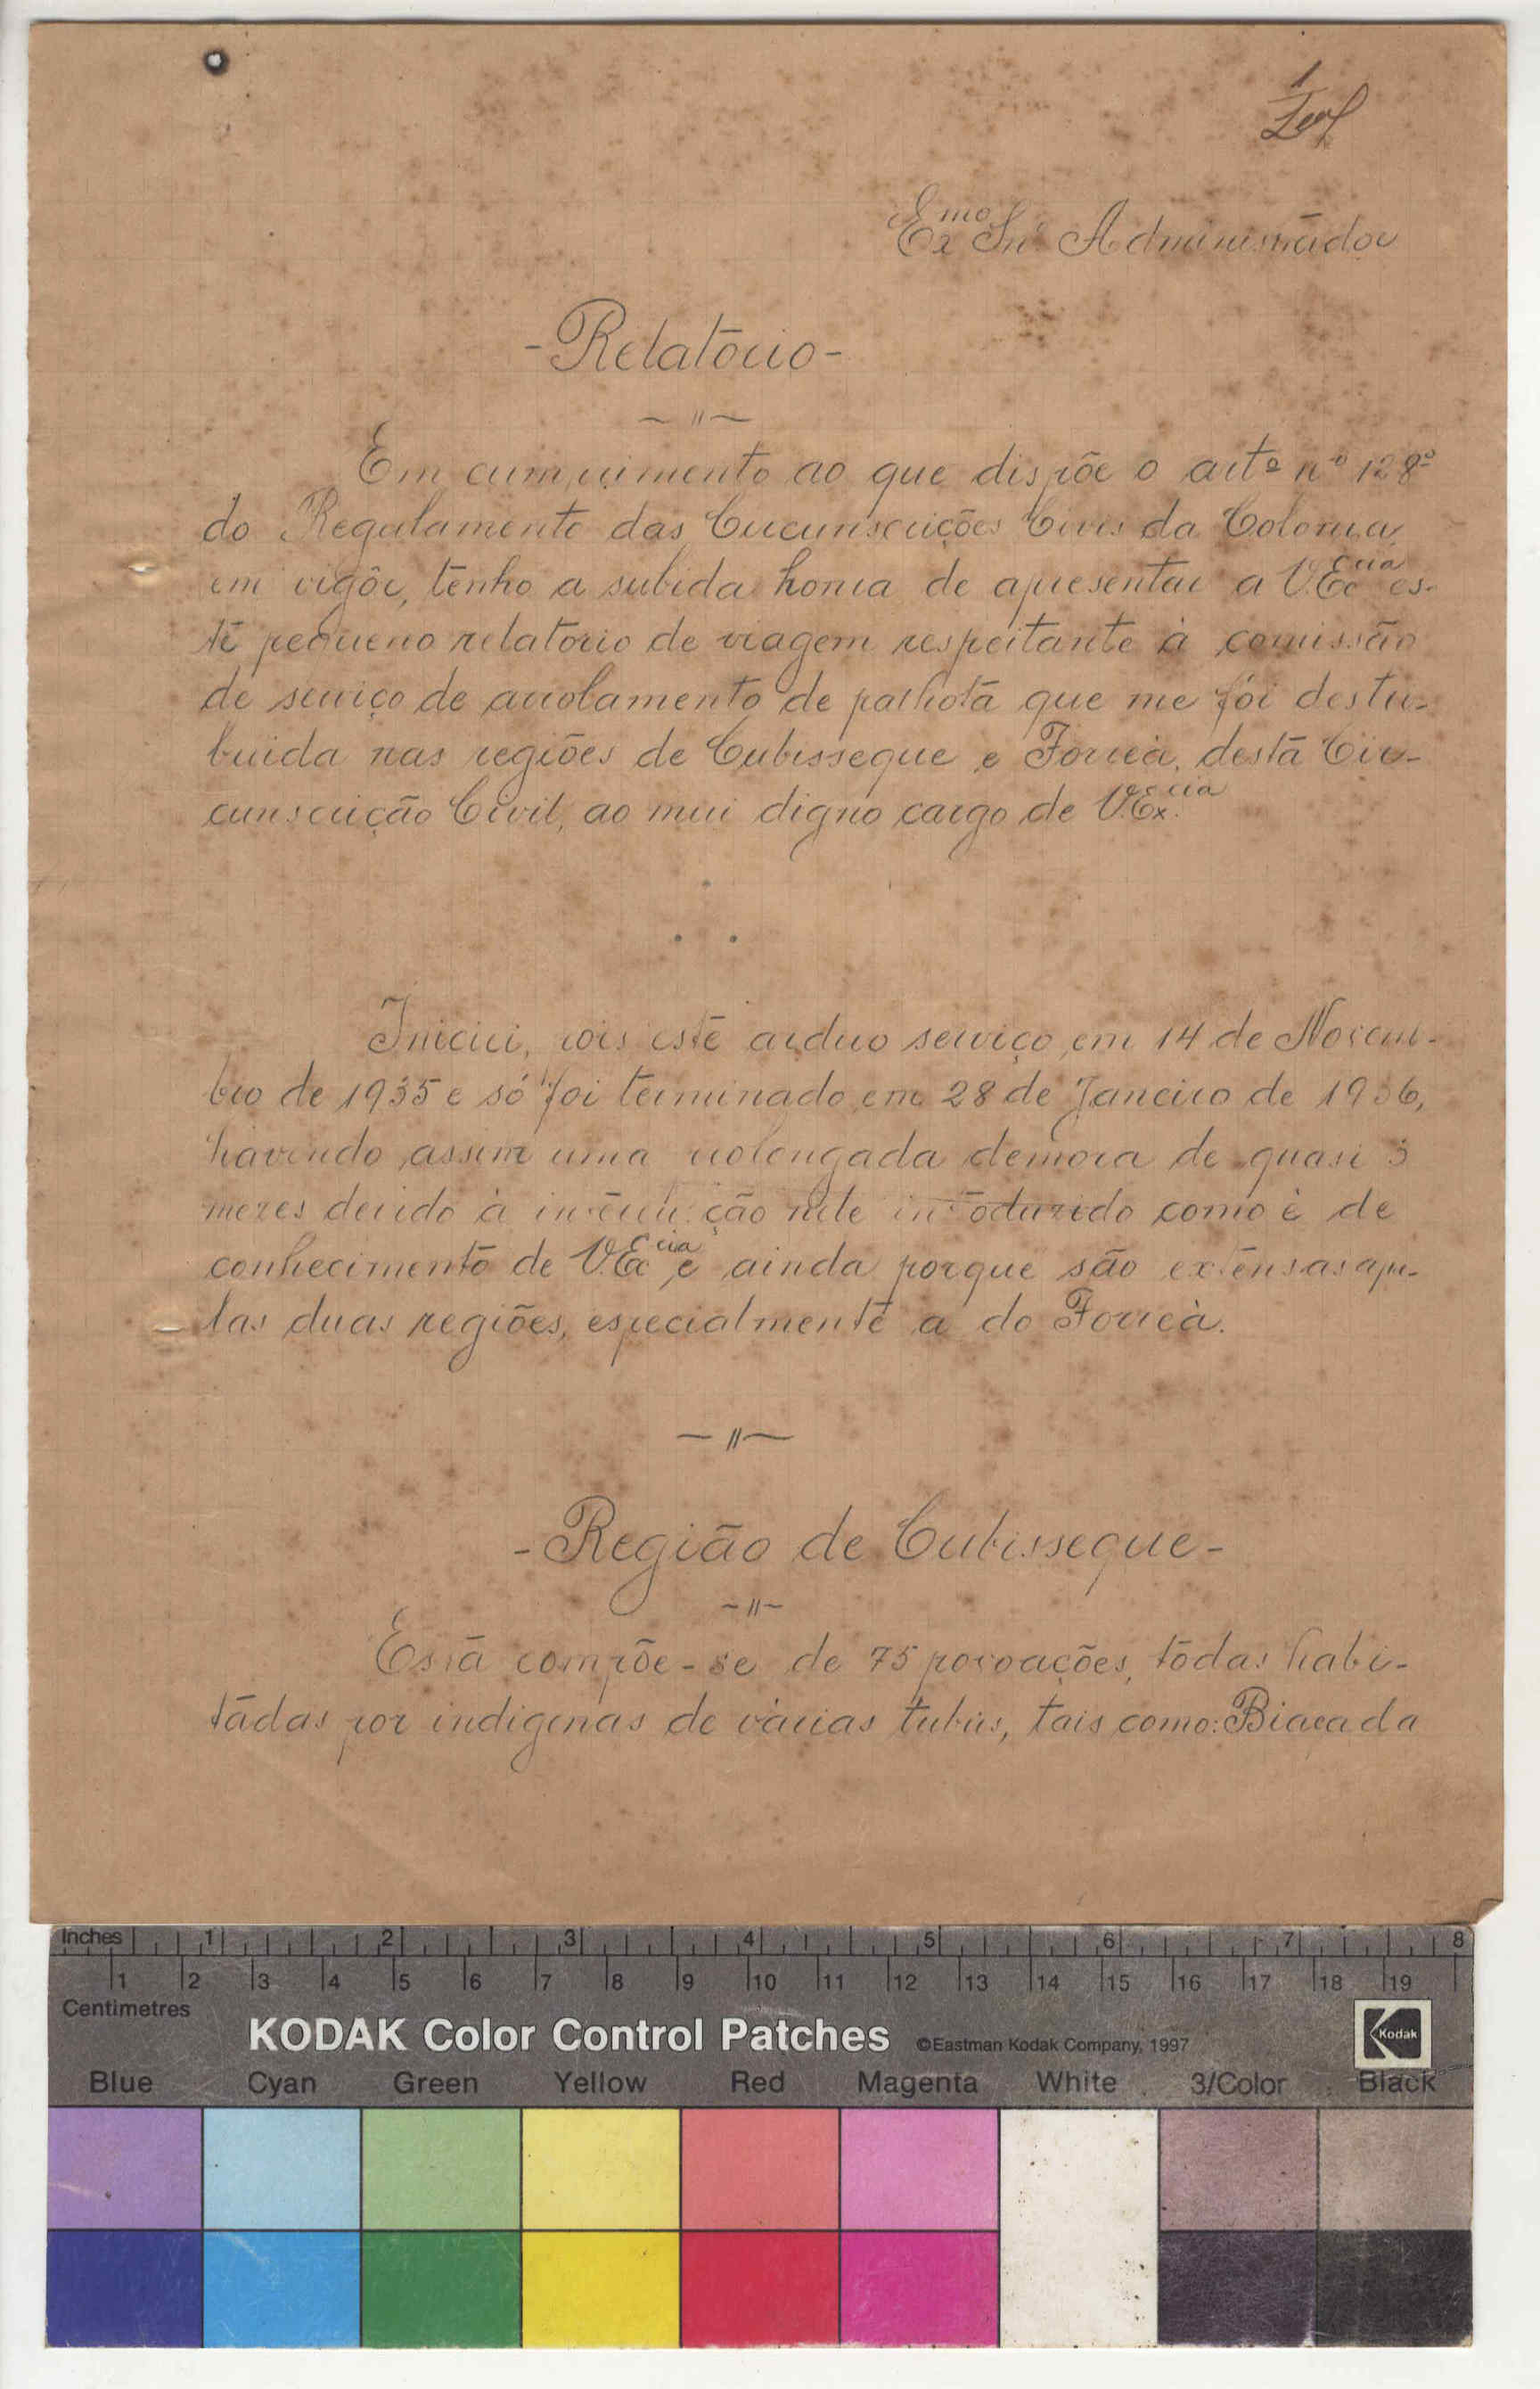 1
Exmo Snr. Administrador
- Relatório -
Em cumprimento ao que dispõe o artº nº 128º
do Regulamento das Circunscrições Civis da Colonia
em vigôr, tenho a subida honra de apresentar a V. Excia es-
te pequeno relatorio de viagem respeitante à comissão
de serviço de arrolamento de palhota que me fôi destri-
buida nas regiões de Cubisseque e Forreá, desta Cir-
cunscrição Civil, ao mui digno cargo de V. Excia
Iniciei, pois este arduo serviço, em 14 de Novem-
bro de 1935 e só foi terminado em 28 de Janeiro de 1936,
havendo assim uma prolongada demora de quasi 3
mezes devido à nele introduzido como é de
conhecimento de V. Excia e ainda porque são extensas aque-
las duas regiões, especialmente a do Forreà.
- Região de Cubisseque -
Esta compõe-se de 75 povoações, tôdas habi-
tadas por indigenas de vàrias tribus, tais como: Biafada
Inches 1 2 3 4 5 6 7 8
1 2 3 4 5 6 7 8 9 10 11 12 13 14 15 16 17 18 19
Centimetres
KODAK Color Control Patches ©Eastman Kodak Company, 1997 Kodak
Blue Cyan Green Yellow Red Magenta White 3/Color Black